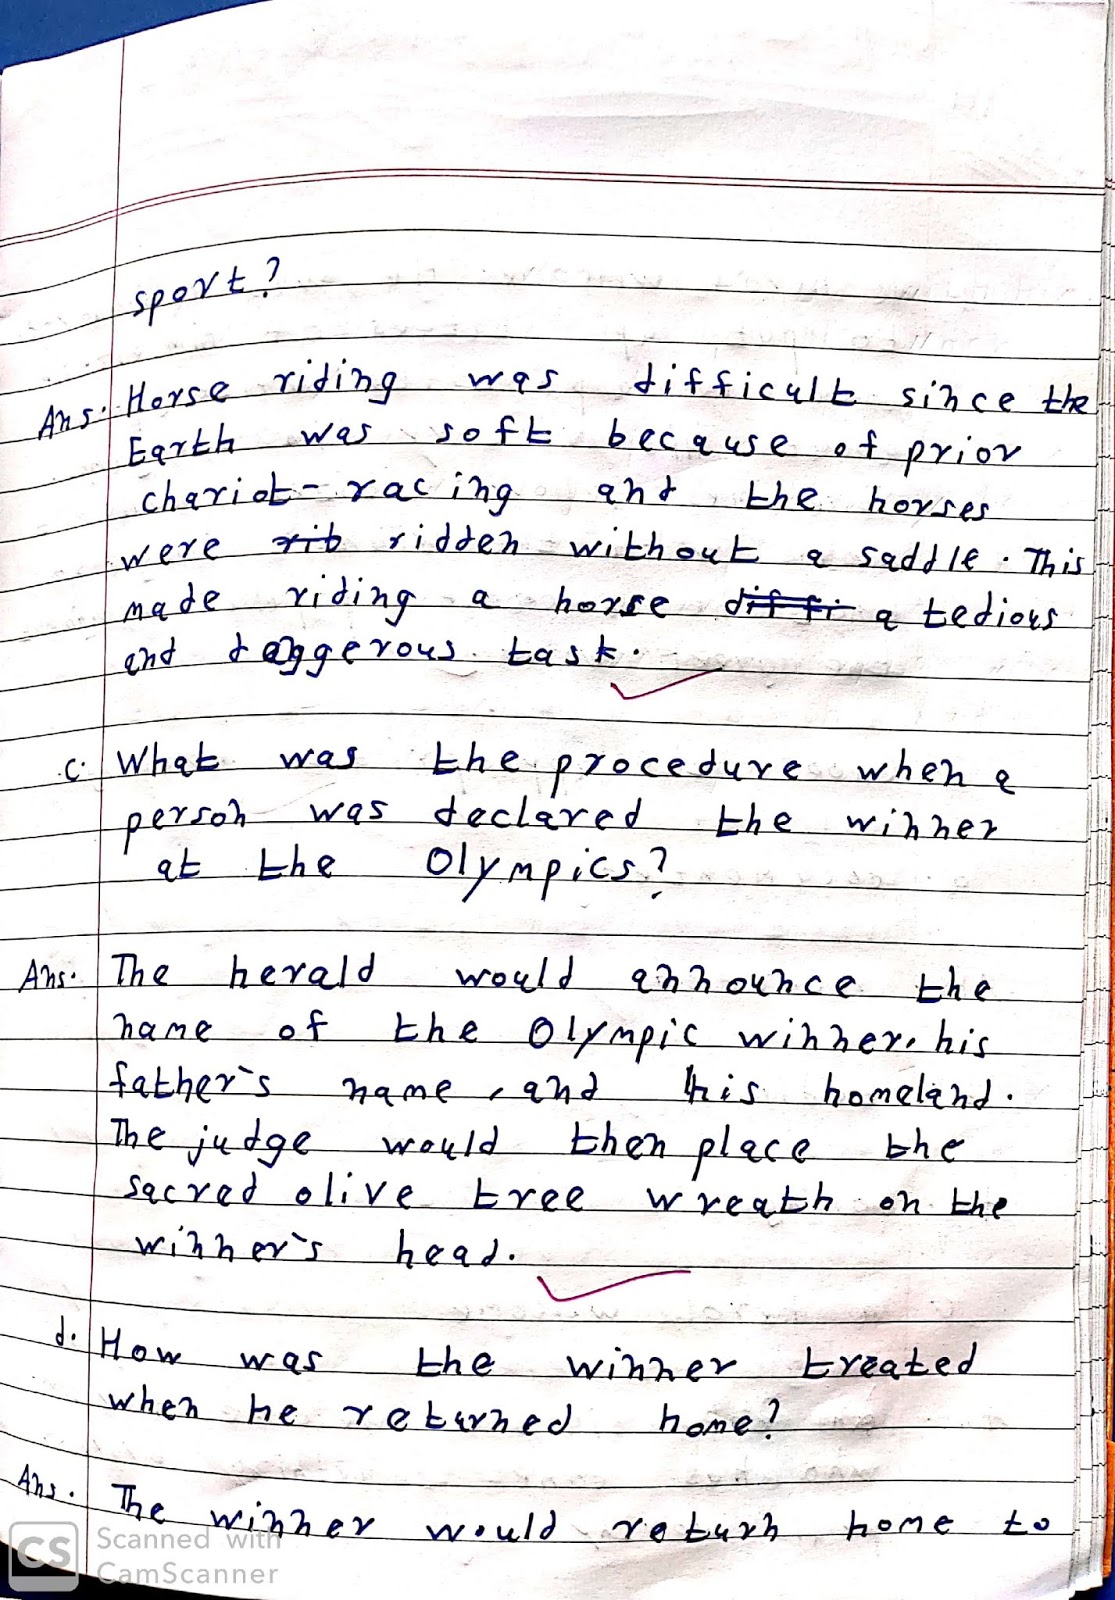 sport?
Ans: Horse riding was difficult since the
Earth was soft because of prior
chariot-racing and the horses
were rib ridden without a saddle. This
made riding a horse diffi a tedious
and danggerous task.
c. What was the procedure when a
person was declared the winner
at the Olympics?
Ans. The herald would announce the
name of the Olympic winner, his
father's name, and his homeland.
The judge would then place the
sacred olive tree wreath on the
winner's head.
d. How was the winner treated
when he returned home?
Ans. The winner would return home to
CS Scanned with
CamScanner